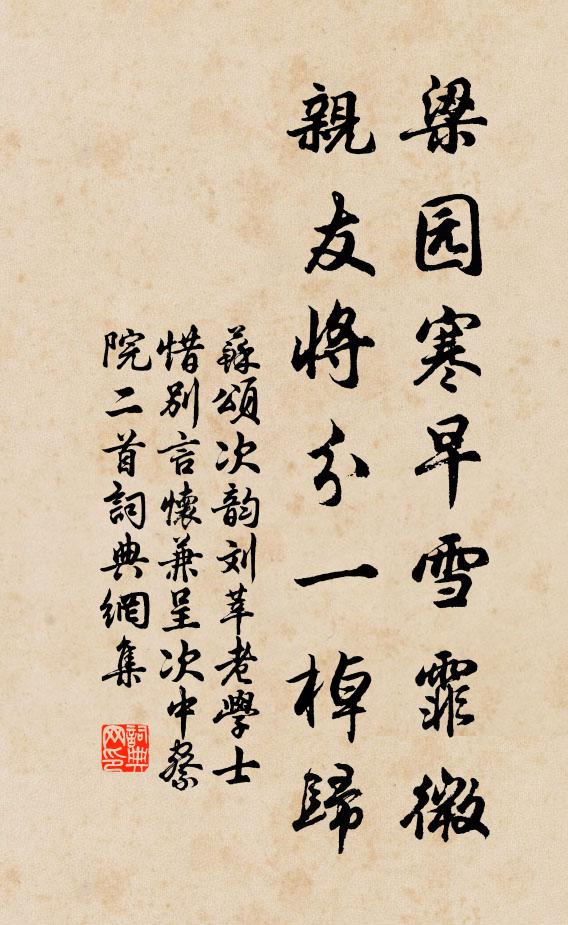 梁园寒早雪霏微
親友将分一棹歸
蘇頌次韵刘莘老學士
惜别言懷兼呈次中察
院二首詞典網集
詞典网印